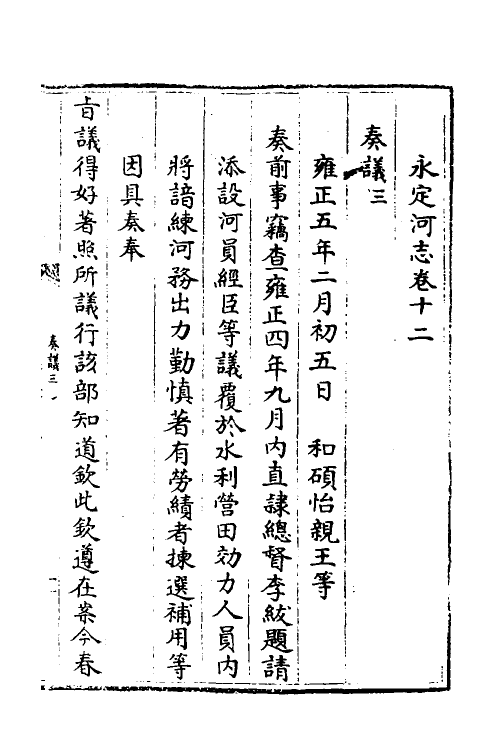 永定河志卷十二
奏議三
雍正五年二月初五日　和碩怡親王等
奏前事竊查雍正四年九月內直隸總督李紱題請
添設河員經臣等議覆於水利營田効力人員內
將諳練河務出力勤慎著有勞績者揀選補用等
因具奏奉
旨議得好著照所議行該部知道欽此欽遵在案今春
奏議三